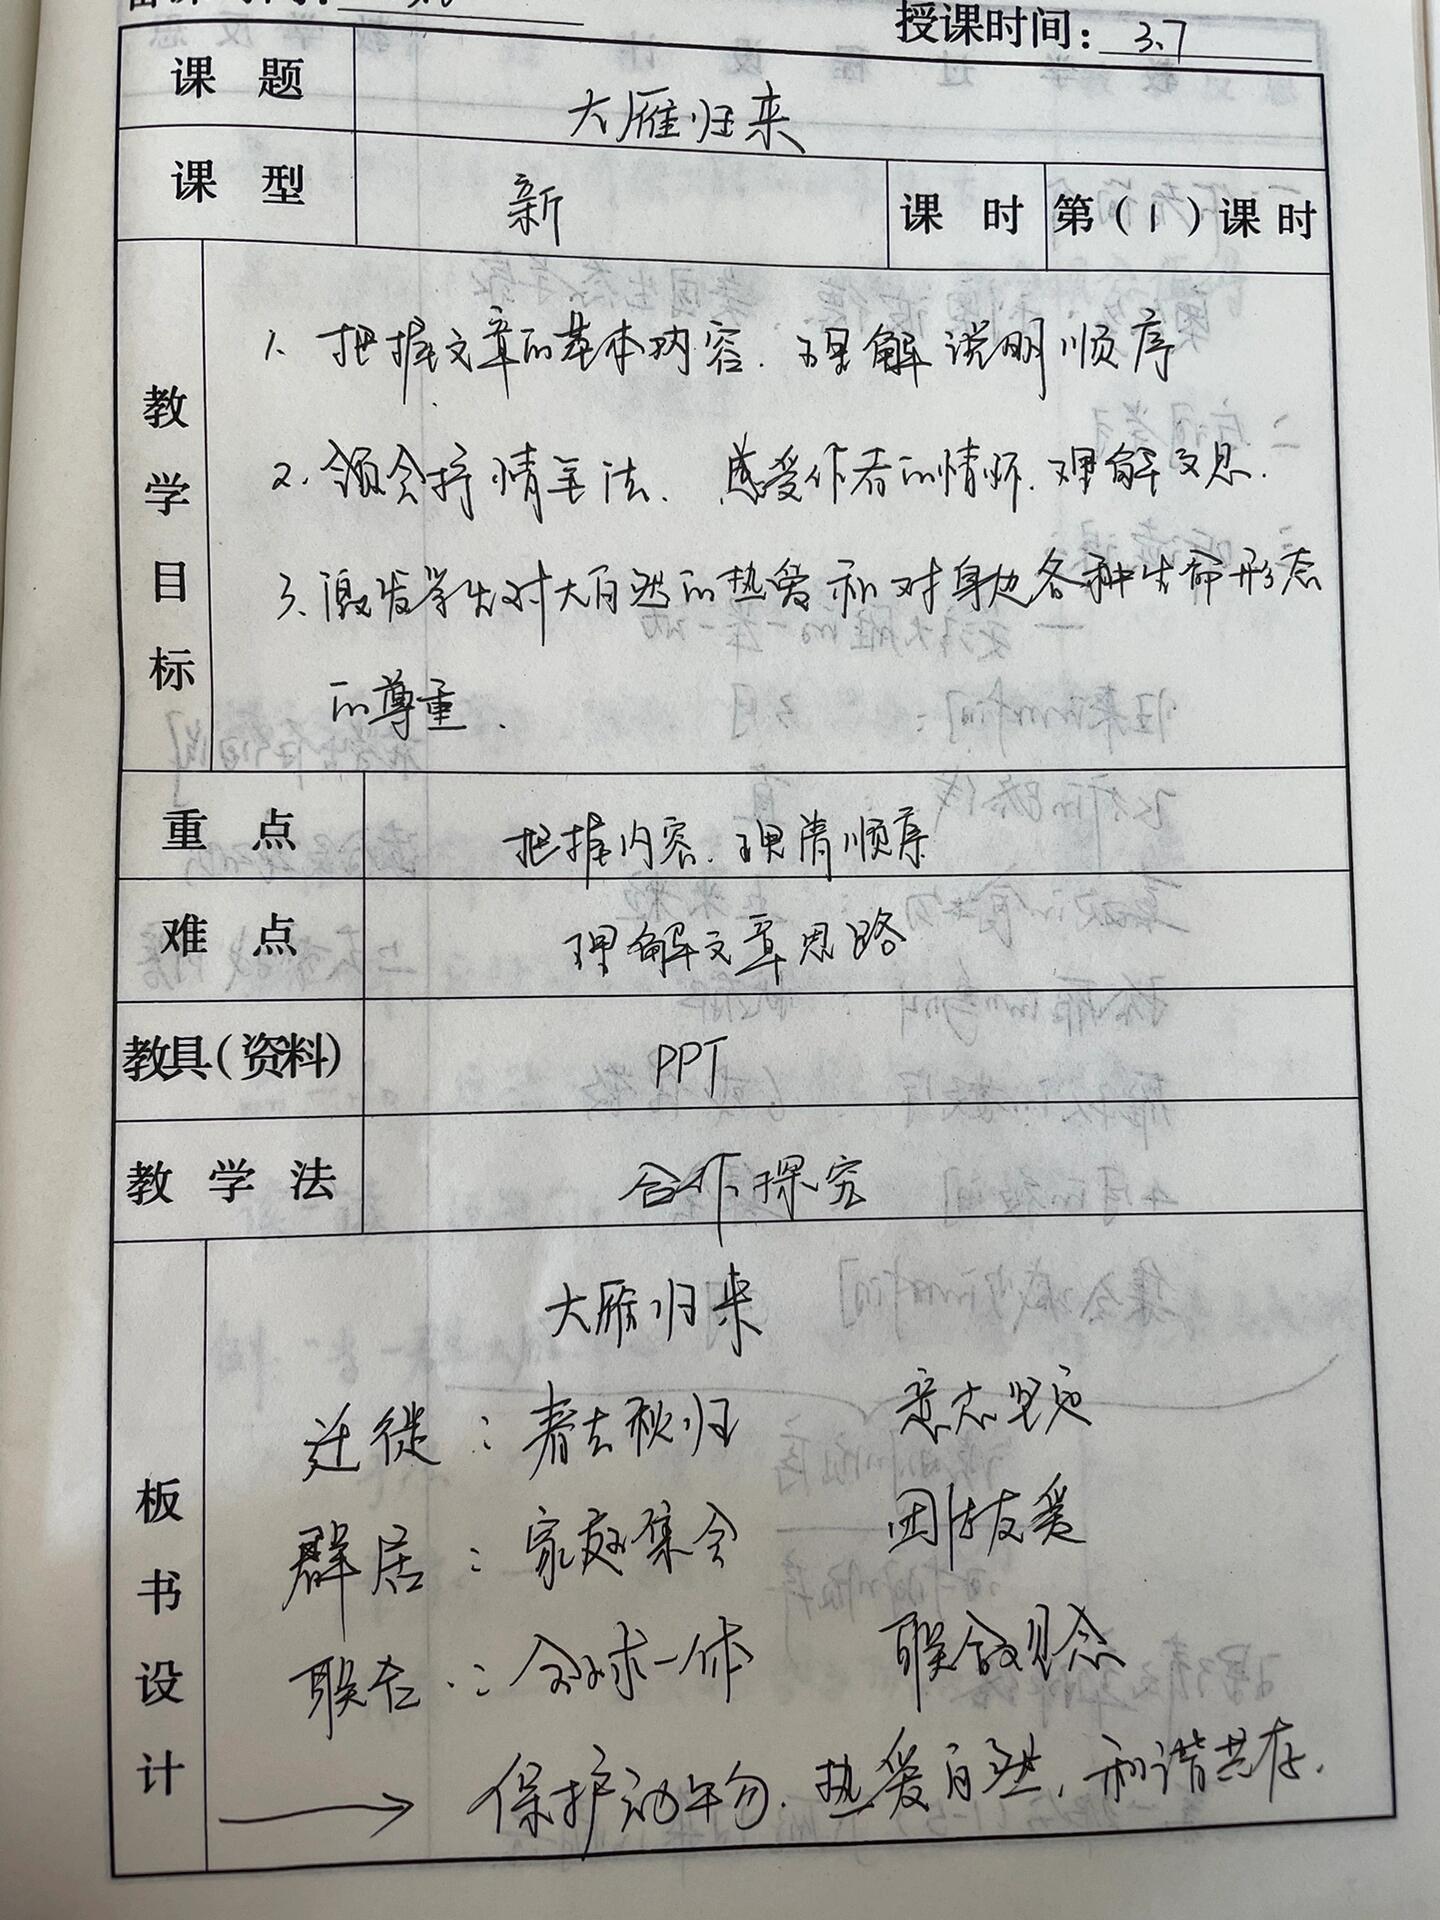 授课时间：3.7
课题 大雁归来
课型 新 课时 第（1）课时
教学目标
1. 把握文章的基本内容. 理解说明顺序
2. 领会抒情手法. 感受作者的情怀. 理解文思.
3. 激发学生对大自然的热爱和对身边各种生命形态
的尊重.
重点 把握内容. 理清顺序
难点 理解文章思路
教具(资料) PPT
教学法 合作探究
板书设计
大雁归来
迁徙：春去秋归 意志坚定
群居：家庭集会 团结友爱
联合：全球一体 联合观念
→ 保护动物. 热爱自然, 和谐共存.